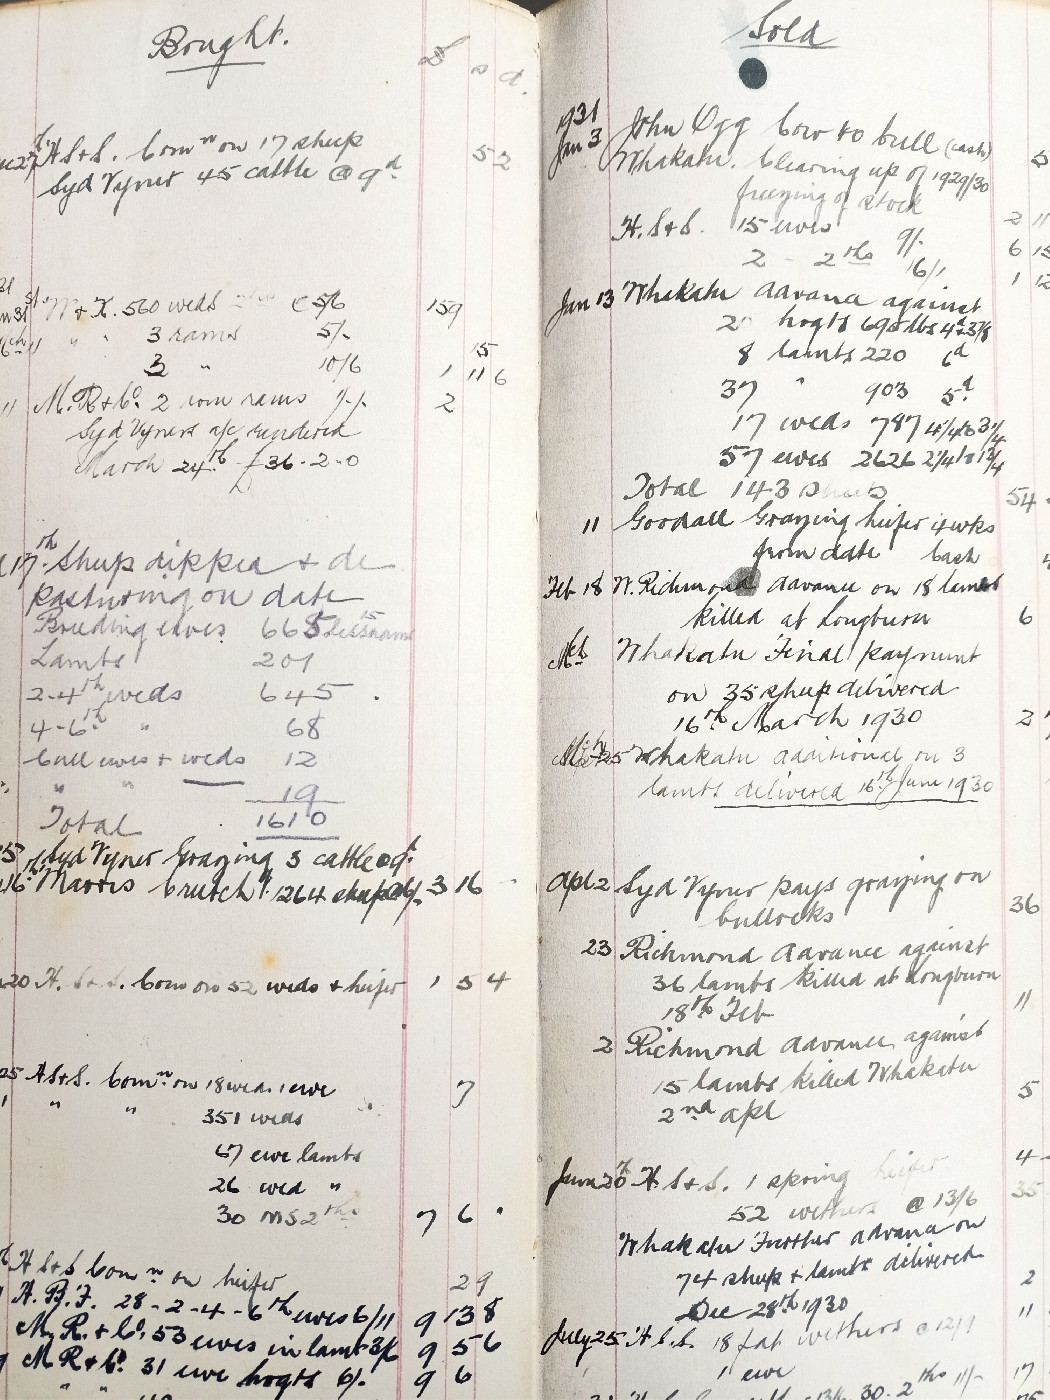 Bought.
£ s d.
H S & S. Comm n on 17 sheep 5 2
Syd Vyner 45 cattle @ 9d
560 weds @ 5/6 159
" " 3 rams 5/- 15
3 " 10/6 1 11 6
M. R & Co. 2 rom rams 2
Syd Vyners a/c rendered
March 24th £36-2-0
17th Sheep dipped & de
pasturing on date
Breeding ewes 665 less 15 rams
Lambs 201
2-4th weds 645
4-6th " 68
Cull ewes & weds 12
" " 19
Total 1610
Syd Vyner Grazing 3 cattle
Morris crutch g 1264 sheep 3 16 -
20 H. S & S. Comm on 52 weds & heifer 1 5 4
25 H S & S. Comm n on 18 weds 1 ewe 7
" " " 351 weds
67 ewe lambs
26 wed "
30 MS 2ths 7 6
H S & S Comm n on heifer 29
H. B. F. 28-2-4-6th ewes 6/11 9 13 8
M. R. & Co. 53 ewes in lamb 3/6 9 5 6
M R & Co. 31 ewe hogts 6/- 9 6
Sold
1931
Jan 3 John Ogg cow to bull (cash) 5
Whakatu. Clearing up of 1929/30
freezing of stock 2 11
H. S & S. 15 ewes 9/- 6 15
2 - 2ths 16/- 1 12
Jan 13 Whakatu advance against
hogts 695 lbs
8 lambs 220 6d
37 " 903 5d
17 weds 787
57 ewes 2626
Total 143 sheep 54
11 Goodall Grazing heifer 4 wks
from date Cash 4
Feb 18 W. Richmond advance on 18 lambs
killed at Longburn 6
Mch Whakatu Final payment
on 35 sheep delivered
16th March 1930 2
25 Whakatu additional on 3
lambs delivered 16th June 1930
Apl 2 Syd Vyner pays grazing on
bullocks 36
23 Richmond advance against
36 lambs killed at Longburn
18th Feb 11
2 Richmond advance against
15 lambs killed Whakatu
2nd Apl 5
June 20th H. S & S. 1 spring heifer 4
52 wethers @ 13/6 35
Whakatu Further advance on
74 sheep & lambs delivered
Dec 28th 1930 2
July 25 H. S. S. 18 fat wethers @ 12/9 11
1 ewe
30. 2ths 11/- 17